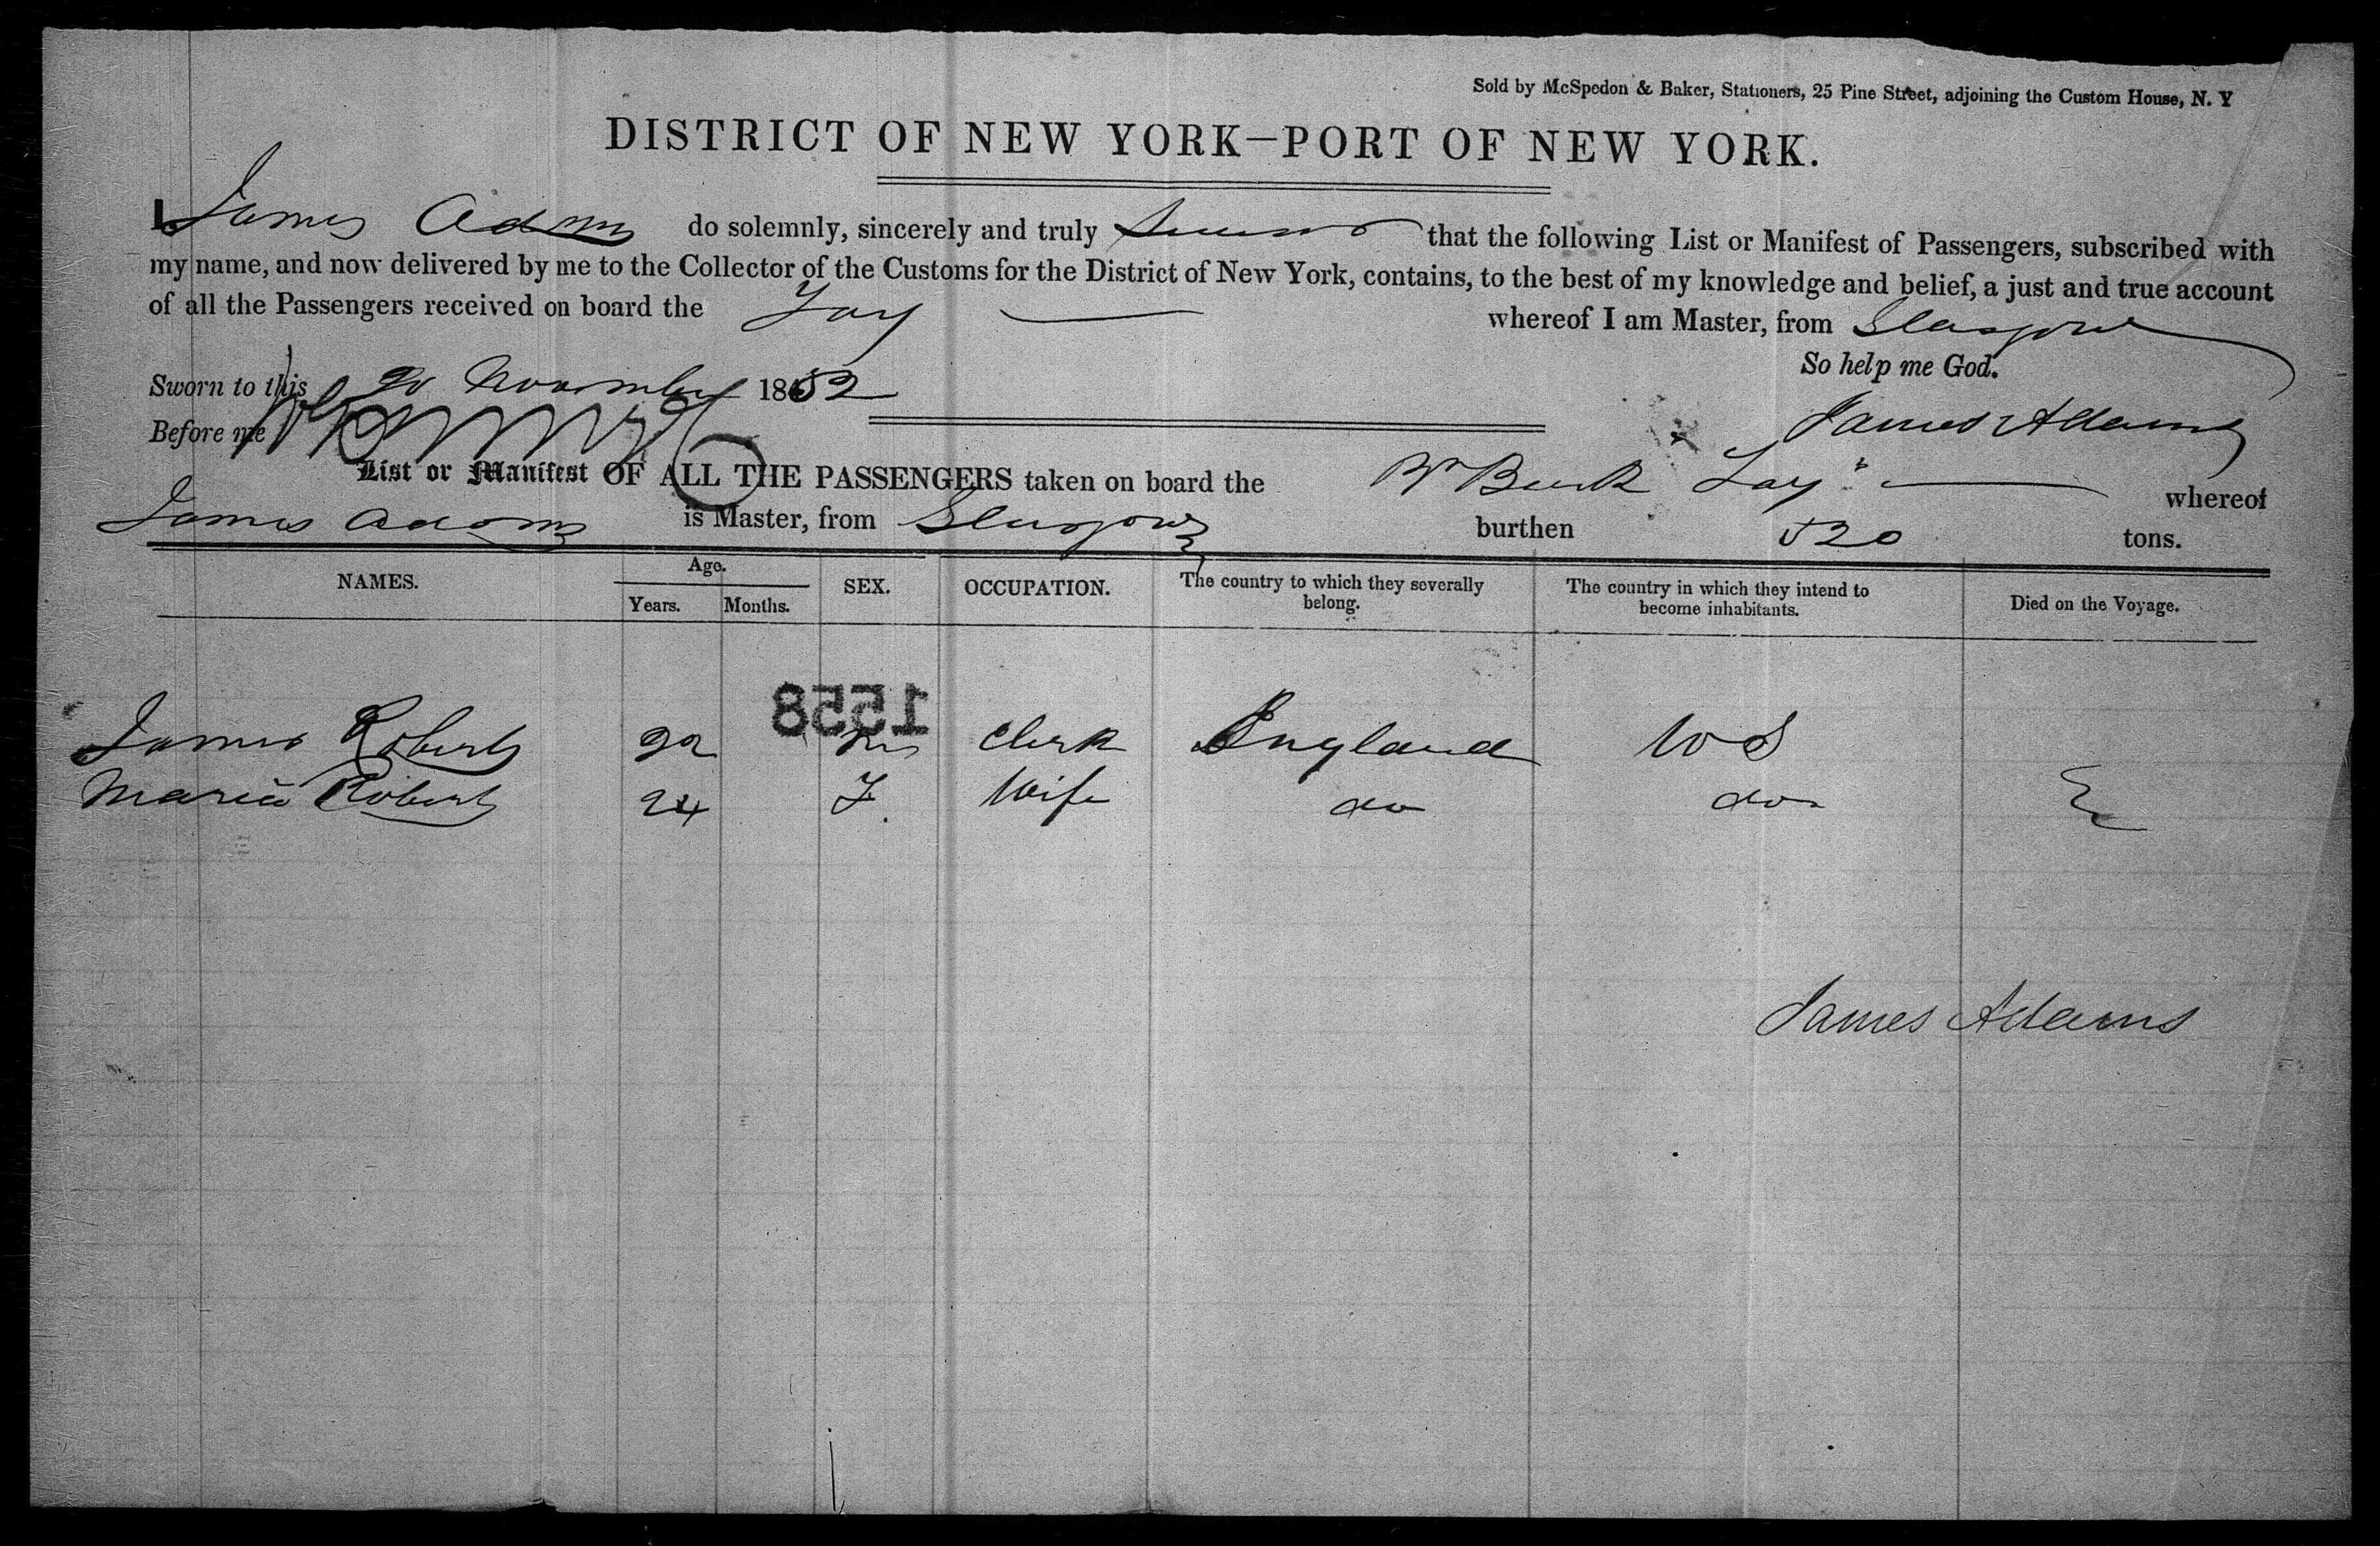 Sold by McSpedon & Baker, Stationers, 25 Pine Street, adjoining the Custom House, N. Y
DISTRICT OF NEW YORK—PORT OF NEW YORK.
I James Adams do solemnly, sincerely and truly Swear that the following List or Manifest of Passengers, subscribed with
my name, and now delivered by me to the Collector of the Customs for the District of New York, contains, to the best of my knowledge and belief, a just and true account
of all the Passengers received on board the Tay whereof I am Master, from Glasgow
So help me God.
Sworn to this 20 November 1852
James Adams
Before me
List or Manifest OF ALL THE PASSENGERS taken on board the Br Bark Tay whereof
James Adams is Master, from Glasgow burthen 520 tons.
NAMES. Age. Years. Months. SEX. OCCUPATION. The country to which they severally belong. The country in which they intend to become inhabitants. Died on the Voyage.
1558
James Roberts 22 m Clerk England U S
Maria Roberts 24 F. Wife do do
James Adams